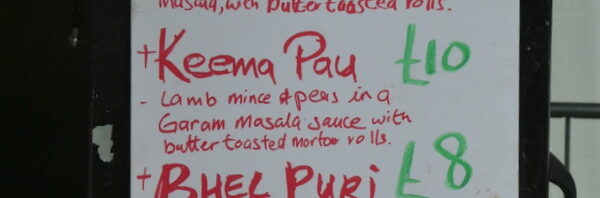 Masala, with butter toasted rolls.
+ Keema Pau £10
- Lamb mince & peas in a
Garam Masala sauce with
butter toasted morton rolls.
+ BHEL PURI £8